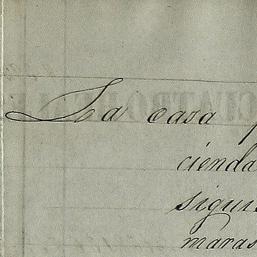 La casa
cienda
sigui
maras